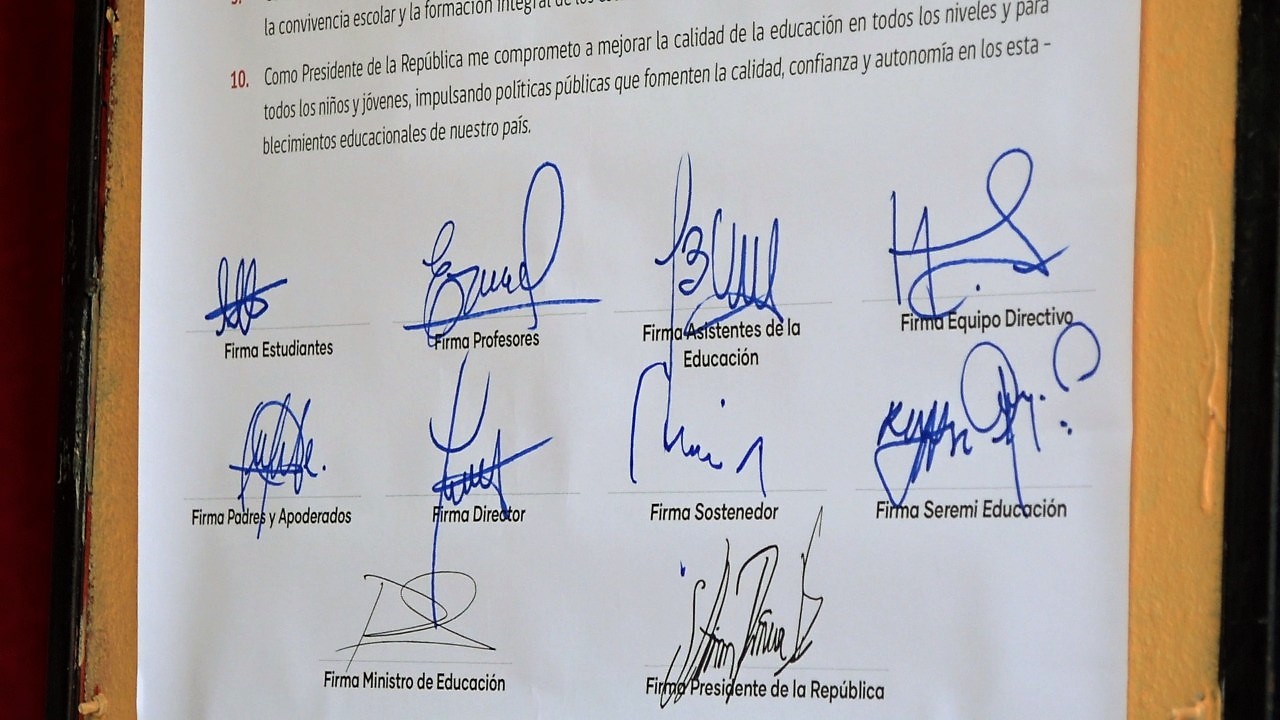 la convivencia escolar y la formación integral de los
10. Como Presidente de la República me comprometo a mejorar la calidad de la educación en todos los niveles y para
todos los niños y jóvenes, impulsando políticas públicas que fomenten la calidad, confianza y autonomía en los esta –
blecimientos educacionales de nuestro país.
Firma Estudiantes
Firma Profesores
Firma Asistentes de la
Educación
Firma Equipo Directivo
Firma Padres y Apoderados
Firma Director
Firma Sostenedor
Firma Seremi Educación
Firma Ministro de Educación
Firma Presidente de la República